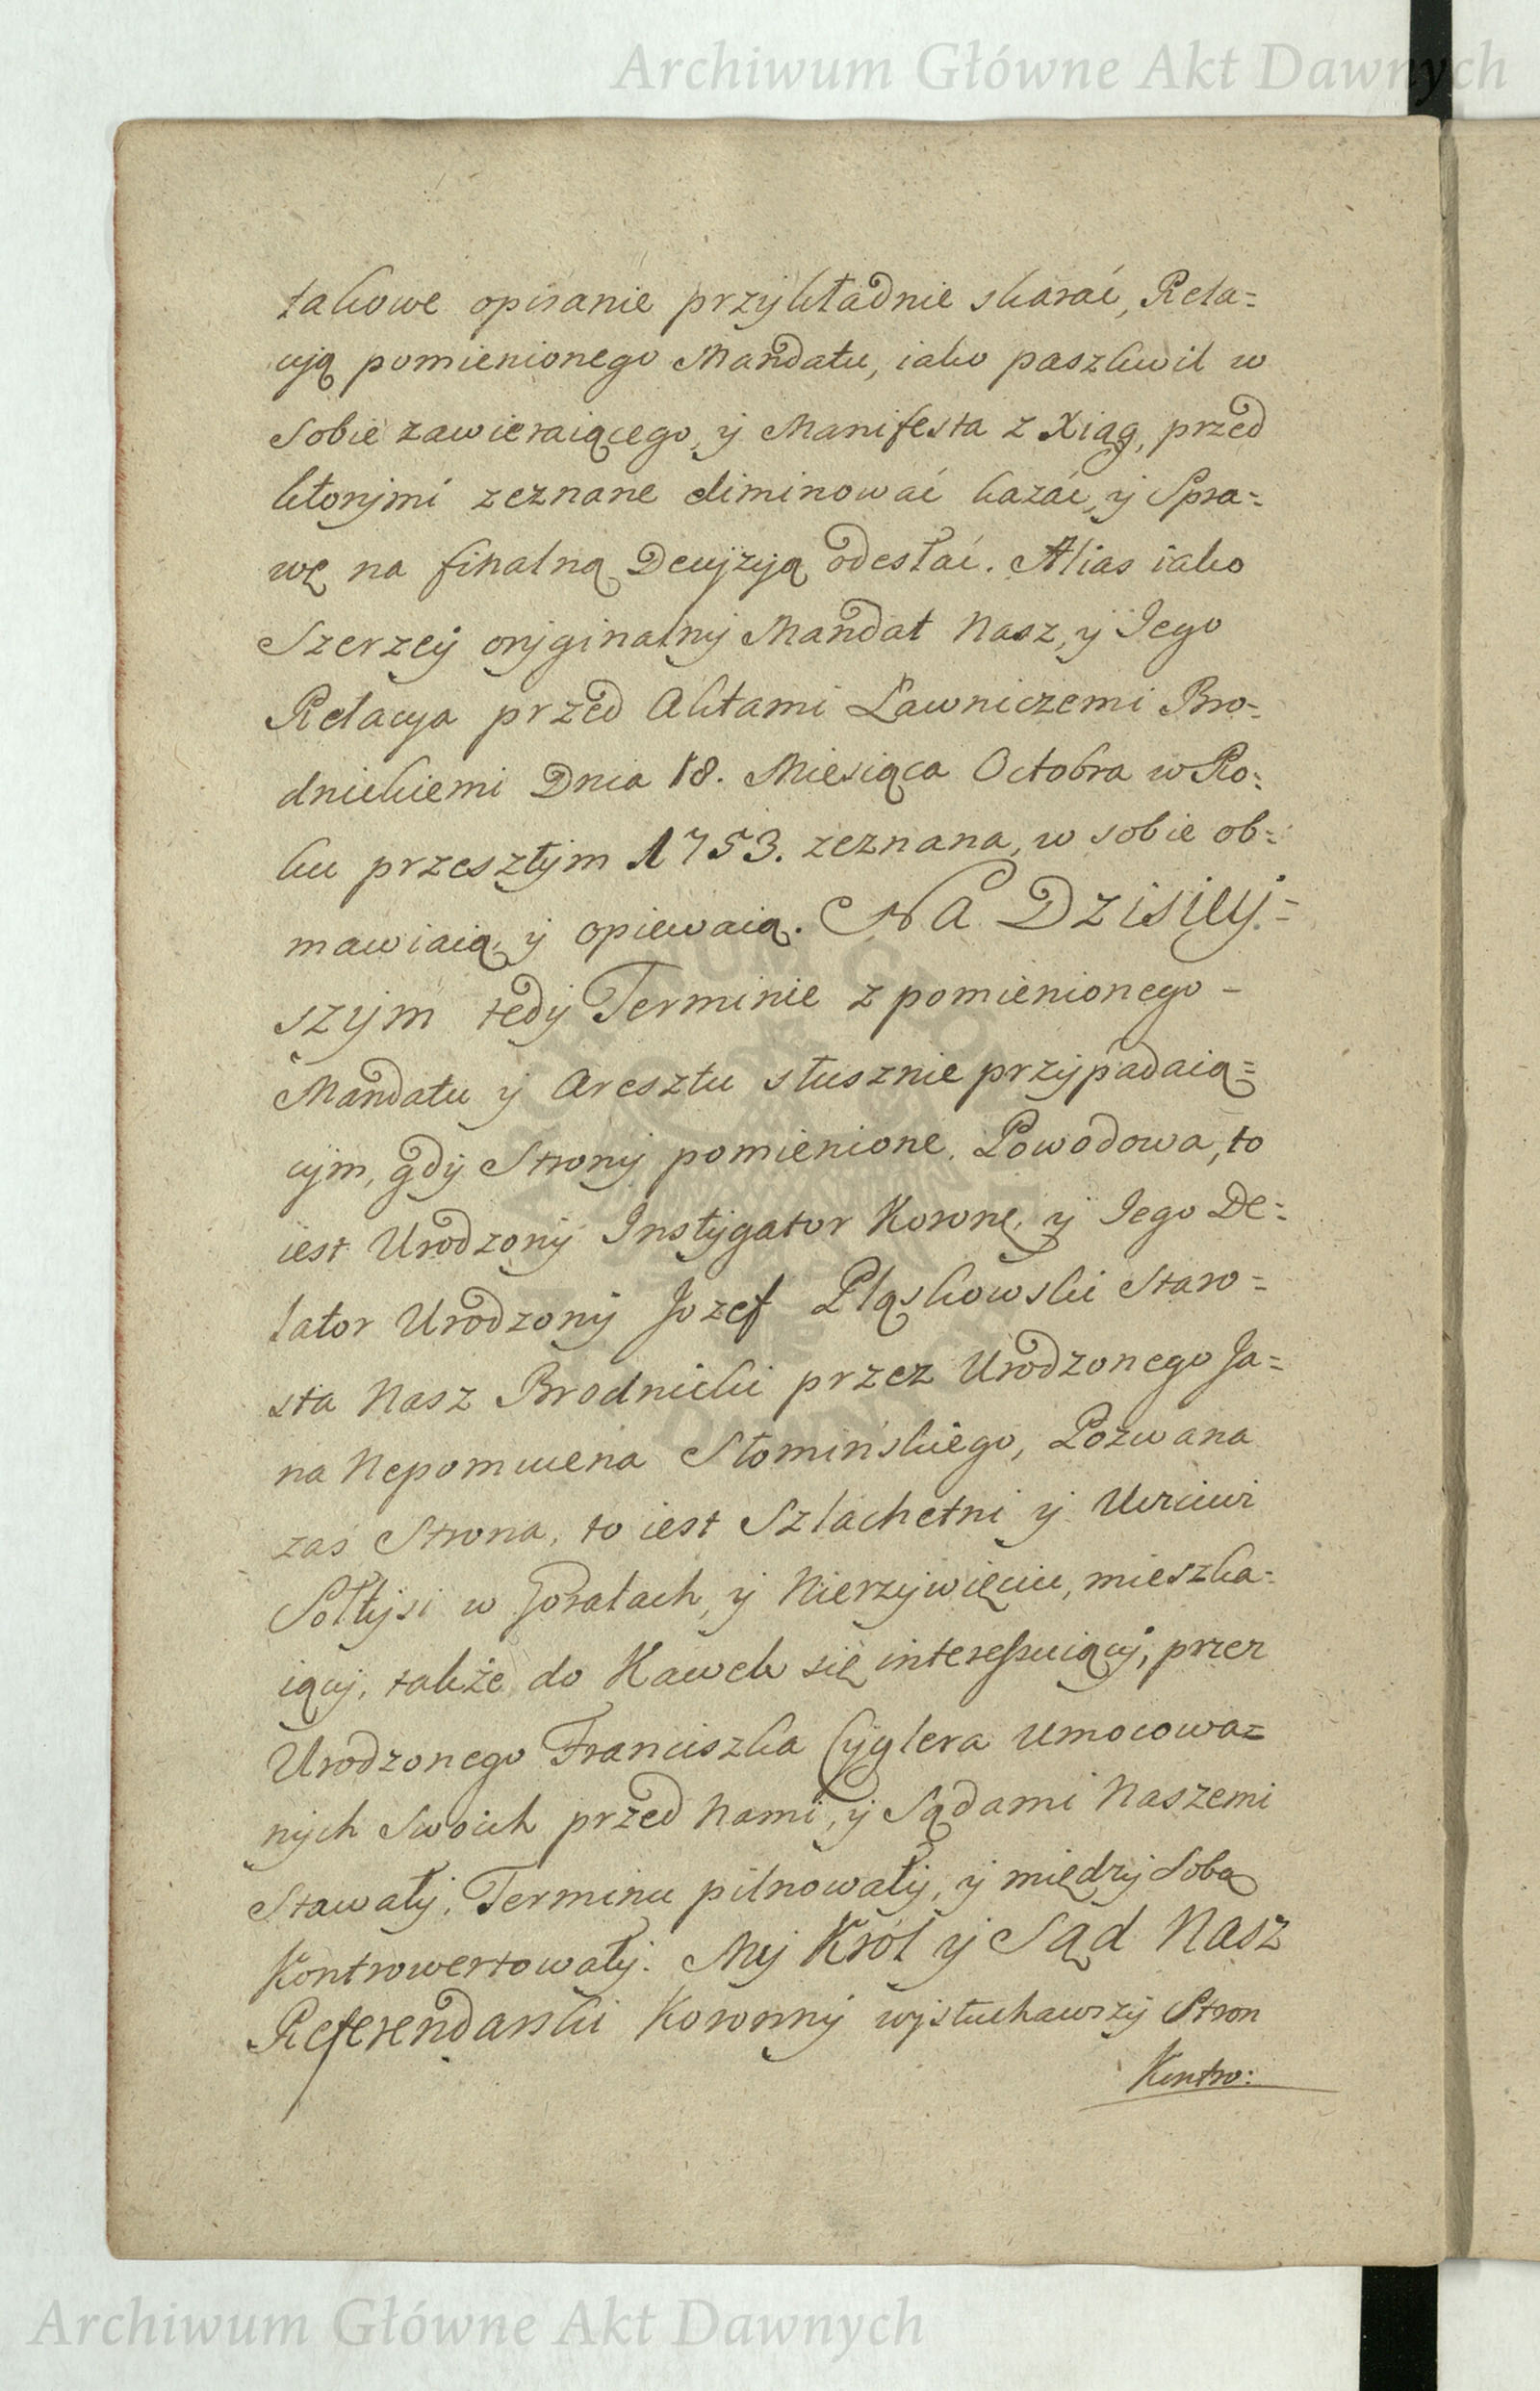 Archiwum Główne Akt Dawnych
takowe opisanie przykładnie skarać, Rela=
cyą pomienionego Mandatu, iako paszkwil w
sobie zawieraiącego, y Manifesta z Xiąg, przed
ktorymi zeznane eliminować kazać, y Spra=
wę na finalną Decyzyą odesłać. Alias iako
Szerzey oryginalny Mandat Nasz, y Jego
Relacya przed Aktami Ławniczemi Bro=
dnickiemi Dnia 18. Miesiąca Octobra w Ro=
ku przeszłym 1753. zeznana, w sobie ob=
mawiaią, y opiewaią. Na Dzisiey=
szym tedy Terminie z pomienionego -
Mandatu y Aresztu słusznie przypadaią=
cym, gdy Strony pomienione, Powodowa, to
iest Urodzony Instygator Koronę, y Jego De=
lator Urodzony Jozef Pląskowski Staro=
sta Nasz Brodnicki przez Urodzonego Ja=
na Nepomucena Słomińskiego, Pozwana
zaś Strona, to iest Szlachetni y Uczciwi
Sołtysi w Goralach, y Nierzywięciu, mieszka=
iący, także do Kawek się interessuiący, przez
Urodzonego Franciszka Cyglera umocowa=
nych swoich przed Nami, y Sądami Naszemi
Stawały, Terminu pilnowały, y między sobą
Kontrowertowały. My Król y Sąd Nasz
Referendarski Koronny wysłuchawszy Stron
Kontro:
Archiwum Główne Akt Dawnych